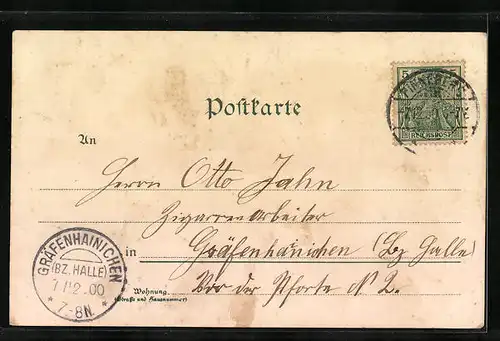 5
REICHSPOST
Postkarte
An
Herrn Otto Jahn
Zigarrenarbeiter
in Gräfenhainichen (Bz Halle)
Wohnung
(Straße und Hausnummer)
Vor der Pforte N 2.
GRÄFENHAINICHEN
(BZ. HALLE)
00
* 7-8N. *